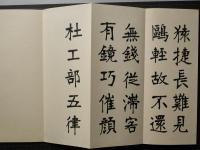 猿捷長難見
鷗輕故不還
無錢從滯客
有鏡巧催顏
杜工部五律